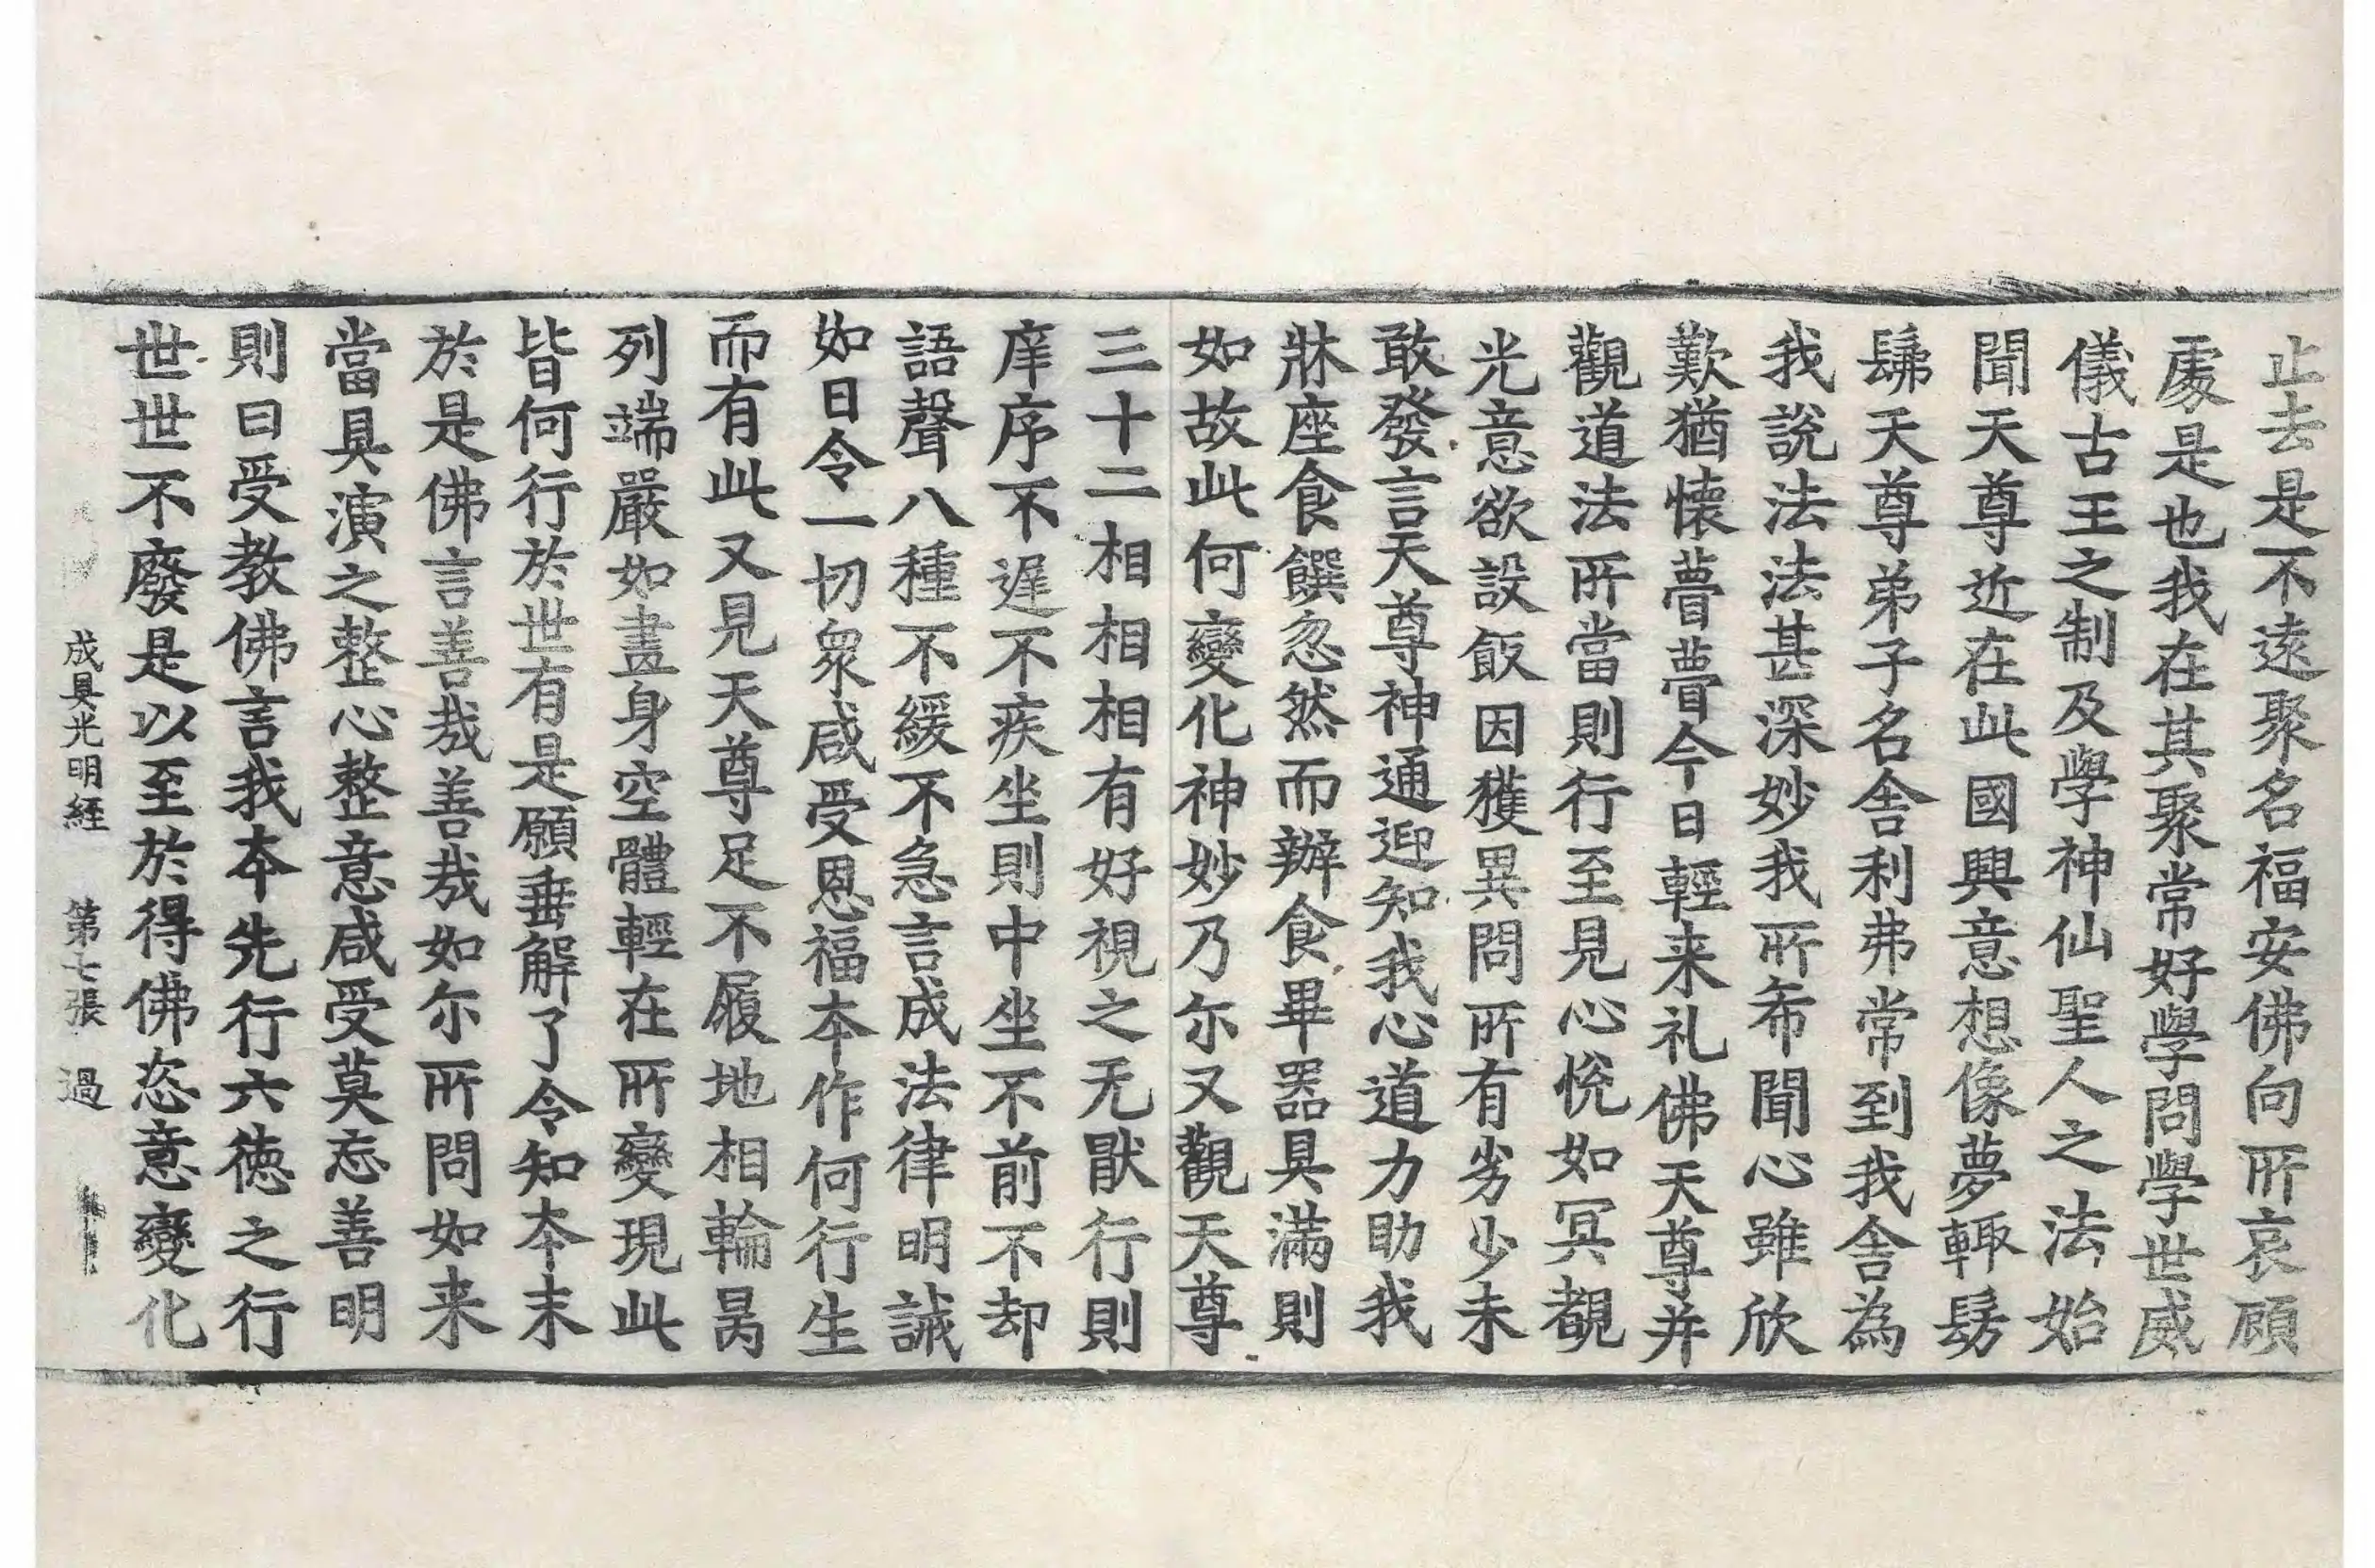 止去是不遠聚名福安佛向所哀顧
處是也我在其聚常好學問學世威
儀古王之制及學神仙聖人之法始
聞天尊近在此國興意想像夢輙髣
髴天尊弟子名舍利弗常到我舍為
我說法法甚深妙我所希聞心雖欣
歎猶懷瞢瞢今日輕来礼佛天尊并
觀道法所當則行至見心恱如冥覩
光意欲設飯因獲異問所有劣少未
敢發言天尊神通迎知我心道力助我
牀座食饌忽然而辦食畢器具滿則
如故此何變化神妙乃尓又觀天尊
三十二相相相有好視之无猒行則
庠序不遲不疾坐則中坐不前不却
語聲八種不緩不急言成法律明誡
如日令一切衆咸受恩福本作何行生
而有此又見天尊足不履地相輪昺
列端嚴如畫身空體輕在所變現此
皆何行於世有是願垂解了令知本末
於是佛言善㢤善㢤如尓所問如来
當具演之整心整意咸受莫忘善明
則曰受教佛言我本先行六徳之行
世世不廢是以至於得佛恣意變化
成具光明経 第七張 過